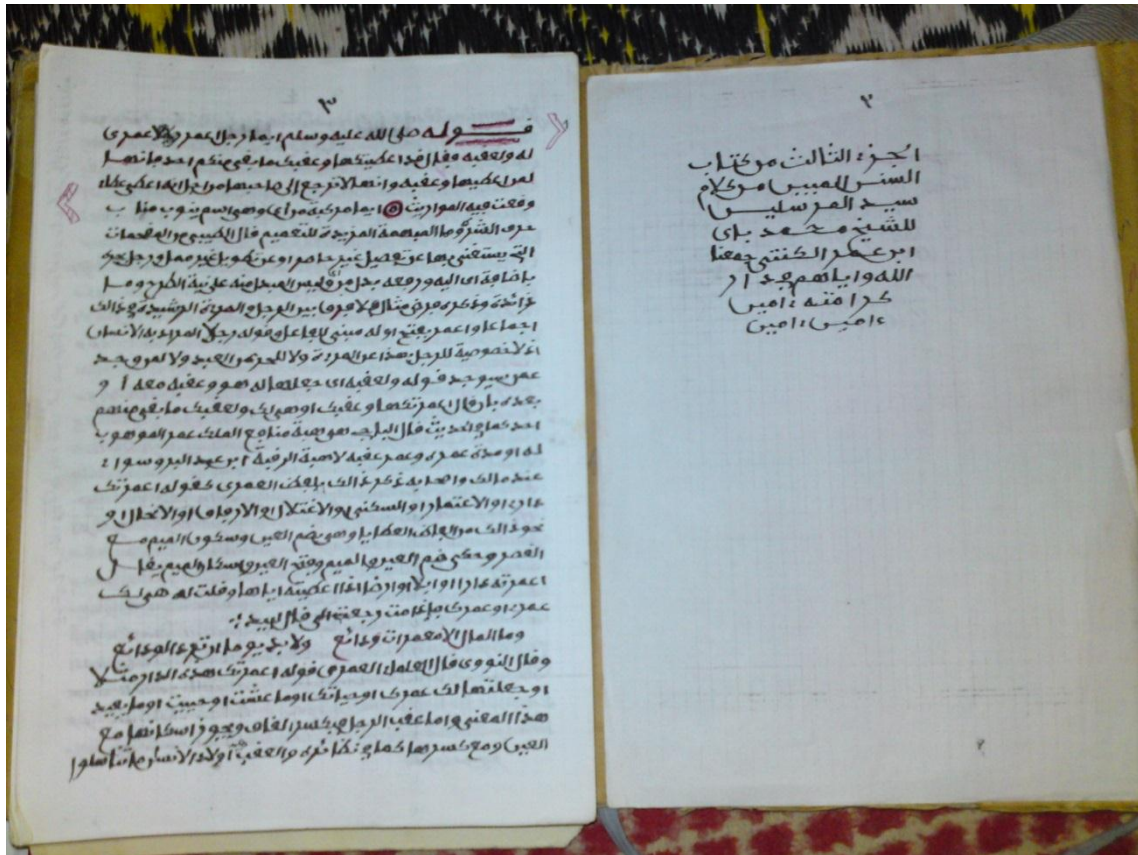 ٢
الجزء الثالث من كتاب
السنن المبين من كلام
سيد المرسلين
للشيخ محمد باي
ابن عمر الكنتي جمعنا
الله واياهم في دار
كرامته ءامين
ءامين ءامين
٣
قوله صلى الله عليه وسلم ايما رجل اعمر رجلا عمرى
له ولعقبه فقال قد اعطيتكها وعقبك ما بقي منكم احد فانها
لمن اعطيها وعقبه وانها لا ترجع الى صاحبها من اجل انه اعطى عطاء
وقعت فيه المواريث ايما مركبة من أي وهي اسم ينوب مناب
حرف الشرط وما المبهمة المزيدة للتعميم قال الطيبي من المقحمات
التي يستغنى بها عن تفصيل غير حاصر او عن تطويل غير ممل ورجل بجر
باضافة اي اليه ورفعه بدل من أي وليس المبدل منه على نية الطرح وما
زائدة وذكره مرض مثال لا فرق بين الرجل والمرأة الرشيدة في ذالك
اجماعا واعمر بفتح اوله مبني للفاعل وقوله رجلا المراد به الانسان
اذ لا خصوصية للرجل بهذا عن المرءة ولا للحر عن العبد ولا لمن وجد
عمن سيوجد قوله ولعقبه اي جعلها له هو وعقبه معه أو
بعده بان قال اعمرتكها وعقبك او هي لك ولعقبك ما بقي منهم
احد كما في الحديث قال الباجي هو هبة منافع الملك عمر الموهوب
له او مدة عمره وعمر عقبه لا هبة الرقبة ابن عبد البر وسواء
عند مالك واصحابه ذكر ذالك بلفظ العمرى كقوله اعمرتك
داري او الاعتمار او السكنى او الاغتلال او الارفاق او الانحال او
نحو ذالك من الفاظ العطايا وهو بضم العين وسكون الميم مع
القصر وحكي ضم العين والميم وفتح العين واسكان الميم يقال
اعمرته دارا او ابلا او ارضا اذا اعطيته اياها وقلت له هي لك
عمري او عمرك فاذا مت رجعت الي قال لبيد
وما المال الا معمرات ودائع ولا بد يوما ان ترد الودائع
وقال النووي قال العلماء العمرى قوله اعمرتك هذه الدار مثلا
او جعلتها لك عمرك او حياتك او ما عشت او حييت او ما يفيد
هذا المعنى واما عقب الرجل فبكسر القاف ويجوز اسكانها مع فتح
العين ومع كسرها كما في نظائره والعقب أولاد الانسان ما تناسلوا